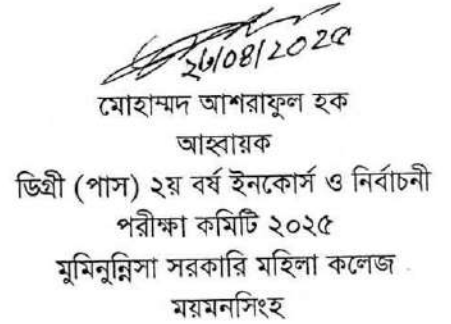 মোহাম্মদ আশরাফুল হক
আহ্বায়ক
ডিগ্রী (পাস) ২য় বর্ষ ইনকোর্স ও নির্বাচনী
পরীক্ষা কমিটি ২০২৫
মুমিনুন্নিসা সরকারি মহিলা কলেজ
ময়মনসিংহ